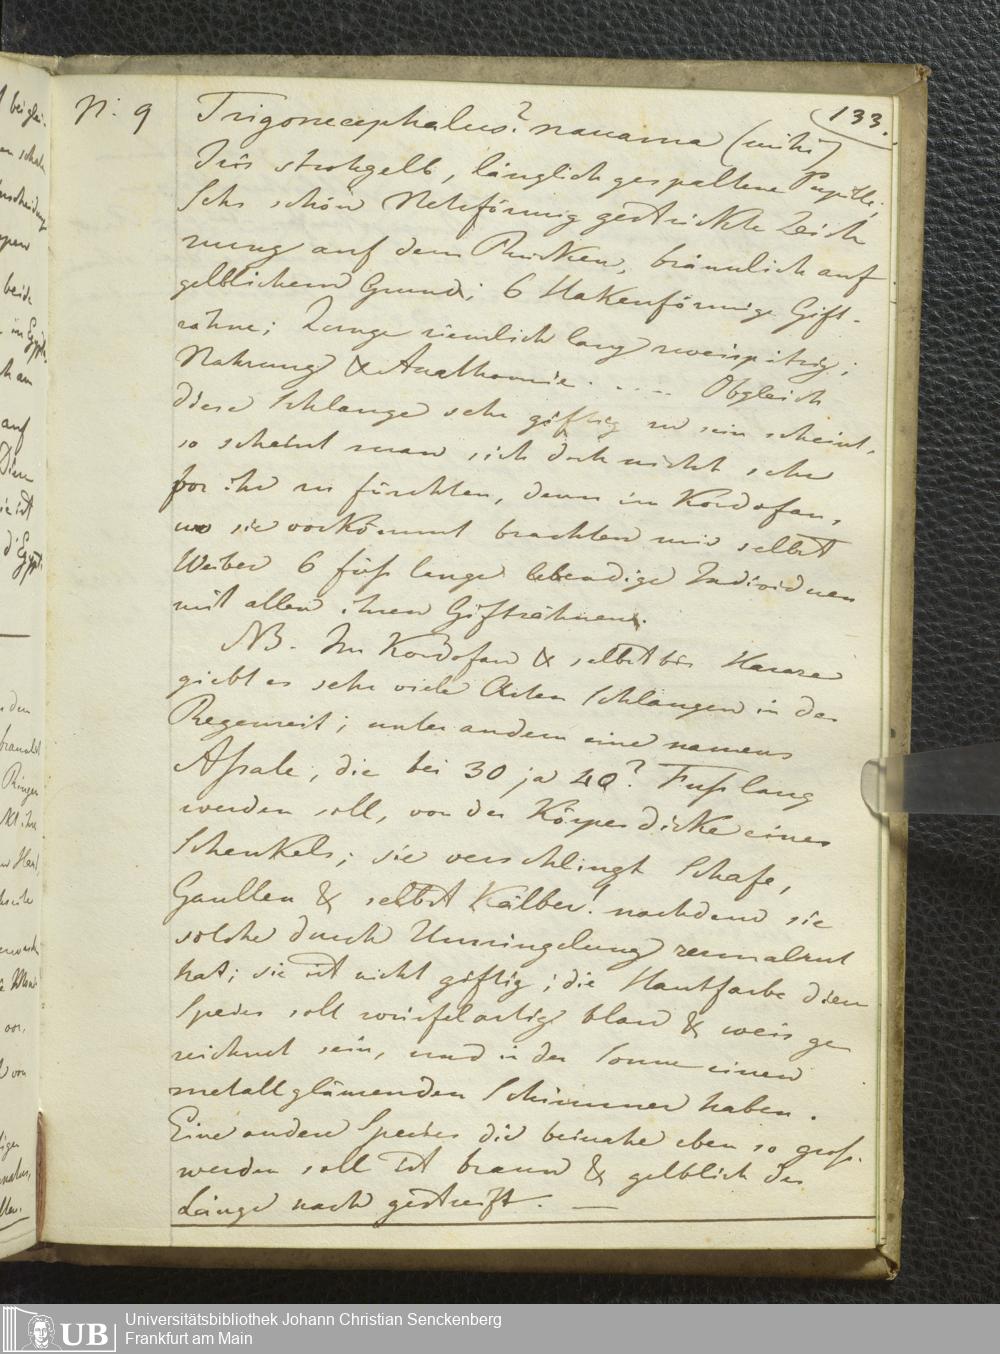 133.
N: 9 Trigonecephalus? nauarna (mihi)
Iris strohgelb, länglich gespaltene Pupille;
Sehr schön Netzförmig gestrickte Zeich
nung auf dem Rücken, bräunlich auf
gelblichem Grund; 6 Hakenförmige Gift-
zähne; Zunge ziemlich lang zweispitzig;
Nahrung & Anathomie. .... Obgleich
diese Schlange sehr giftig zu sein scheint,
so scheint man sich doch nicht sehr
vor ihr zu fürchten, denn im Kordofan,
wo sie vorkömmt brachten mir selbst
Weiber 6 fuß lange lebendige Individuen
mit allen ihren Giftzähnen.
NB. Im Kordofan & selbst bis
giebt es sehr viele Arten Schlangen in der
Regenzeit; unter andern eine namens
Assale, die bei 30 ja 40? Fuß lang
werden soll, von der Körperdicke eines
Schenkels; sie verschlingt Schafe,
& selbst Kälber! nachdem sie
solche durch Umringelung zermalmt
hat; sie ist nicht giftig; die Hautfarbe dieser
Species soll würfelartig blau & weis ge
zeichnet sein, und in der Sonne einen
metallglänzenden Schimmer haben.
Eine andere Species die beinahe eben so groß
werden soll ist braun & gelblich der
Länge nach gestreift. —
Universitätsbibliothek Johann Christian Senckenberg
UB Frankfurt am Main